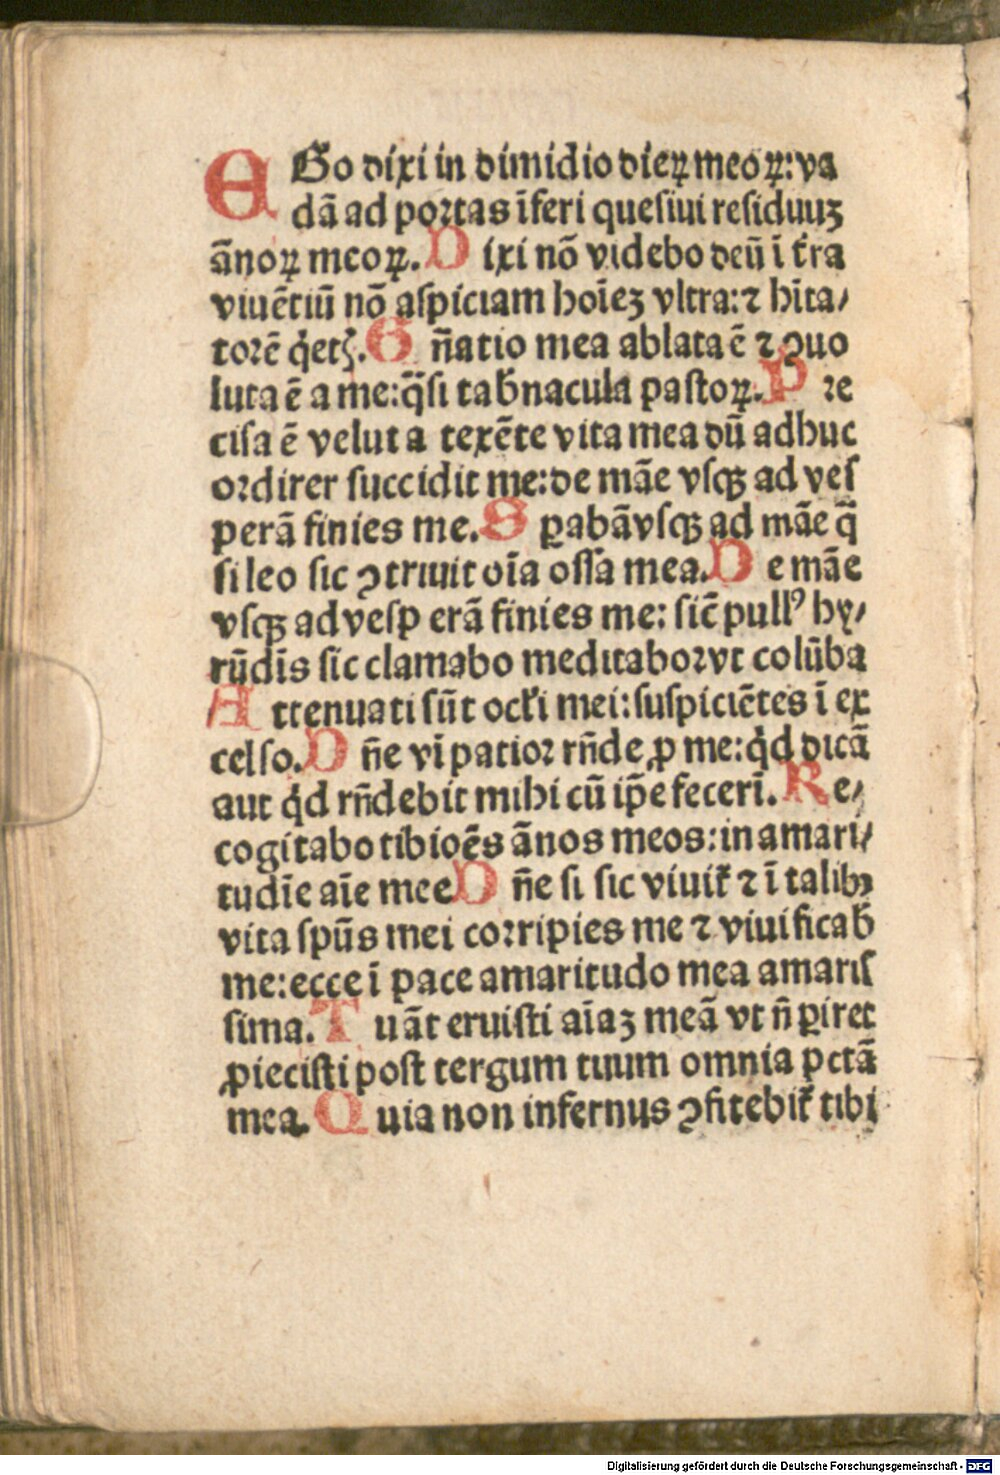 EGo dixi in dimidio dieꝝ meoꝝ: va
dā ad portas īferi quesiui residuuꝫ
ānoꝝ meoꝝ. Dixi nō videbo deū ī t̄ra
viuētiū nō aſpiciam hoīeꝫ vltra: ⁊ hīta/
torē q̇etꝭ. Gn̄atio mea ablata ē ⁊ ꝯuo
luta ē a me: q̄ſi tab̄nacula paſtoꝝ. Pre
ciſa ē velut a texēte vita mea dū adhuc
ordirer ſuccidit me: de māe vſqꝫ ad veſ
perā finies me. Sꝑabā vſqꝫ ad māe q̄
ſi leo ſic ꝯtriuit oīa oſſa mea. De māe
vſqꝫ ad veſperā finies me: ſic̄ pullꝰ hy/
rūdīs ſic clamabo meditabor vt colūba
Attenuati ſūt ocłi mei: ſuſpiciētes ī ex
celſo. Dn̄e vī patior rn̄de ꝓ me: q̇d dicā
aut q̇d rn̄debit mihi cū ip̄e fecerī. Re/
cogitabo tibi oēs ānos meos: in amari/
tudīe aīe mee Dn̄e ſi ſic viuit᷑ ⁊ ī talibꝫ
vita ſpūs mei corripies me ⁊ viuificab̄
me: ecce ī pace amaritudo mea amariſ
ſima. Tu āt eruiſti aīaꝫ meā vt n̄ ꝑiret
ꝓieciſti poſt tergum tuum omnia pctā
mea. Quia non infernus ꝯfitebit᷑ tibi
Digitalisierung gefördert durch die Deutsche Forschungsgemeinschaft - DFG